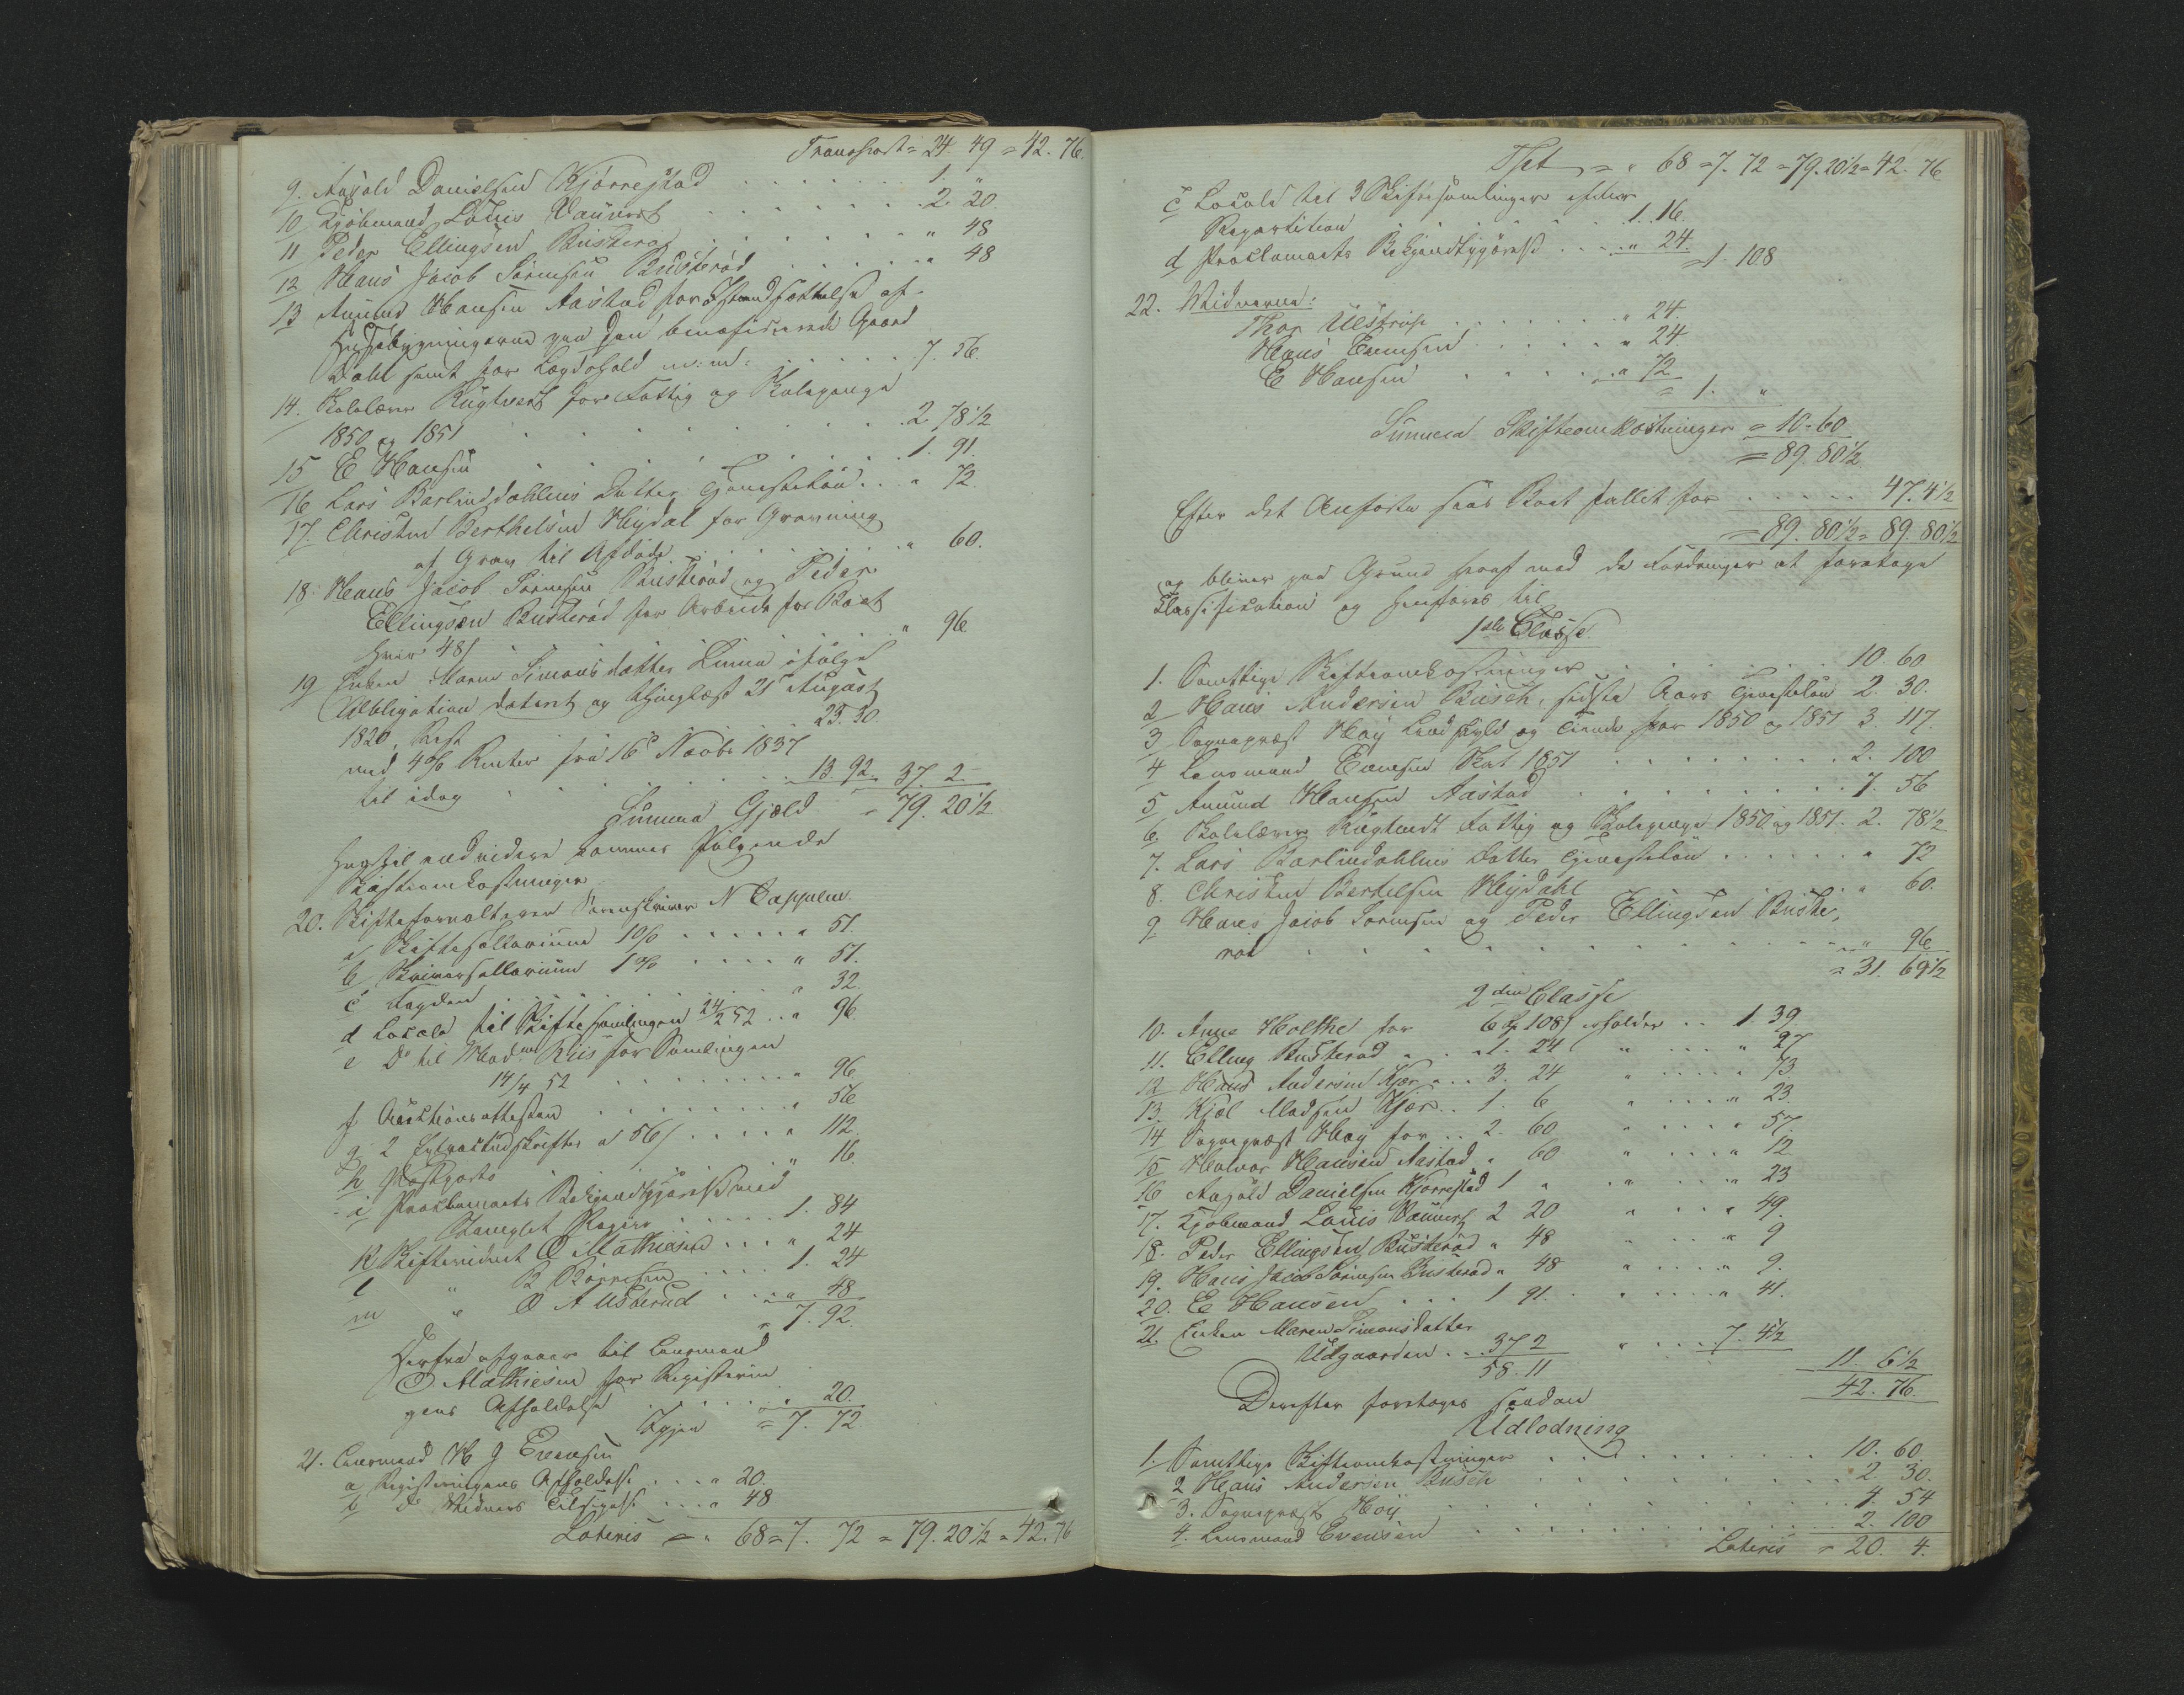 Transport = 24. 49 = 42. 76.
9. Aasold Danielsen Kjörrestad . . . . . . . 1. "
10 Kjöbmand Louis Vauvert . . . . . . . 2. 20.
11 Peder Ellingsen Busterød . . . . . . . " 48
12 Hans Jacob Sörensen Busterød . . . . . " 48
13 Amund Hansen Aastad for Istandsættelse af
Huusbygningerne paa den beneficerede Gaard
Dahl samt for Lægdehold m: m: . . . . . 7. 56.
14. Skolelærer Rugtvedt for Fattig og Skolepenge
1850 og 1851 . . . . . . . . 2 78½
15 E Hansen . . . . . . . . 1. 91.
16 Lars Barlinddahlens Datter Tjenesteløn . . " 72
17. Christen Berthelsen Heydal for Gravning
af Grav til Afdöde . . . . . . " 60.
18. Hans Jacob Sörensen Busterød og Peder
Ellingsen Busterød for Arbeide for Boet
hver 48 ß . . . . . . . . " 96
19 Enken Maren Simonsdatter Linna ifölge
Obligation dateret og thinglæst 21 August
1820, Rest . . . . . . . 23. 30.
med 4% Renter fra 16de Novbr 1837
til idag . . . . . . . 13. 92. 37. 2.
Summa Gjæld = 79. 20½
Hertil endvidere kommer fölgende
Skifteomkostninger
20. Skifteforvalteren Sorenskriver N Cappelen
a Skiftesallarium 1% . . . . . . " 51.
b Skriversallarium 1% . . . . " 51.
c Fogden . . . . . . . . " 32.
d Locale til Skiftesamlingen 24/2 52 . . " 96
e Do til Madme Riis for Samlingen
14/4 52 . . . . . . . . . " 96
f Auctionsattesten . . . . . . . . " 56
g 2 Extractudskrifter a 56 ß . . . . . " 112.
h Postporto " 16
i Proclamaets Bekjendtgjörelse med
Stemplet Papir . . . . . . 1. 84
k Skiftevidnet O Mathiesen . . . " 24
l " B Börresen . . . . 1. 24
m " O A Usterud . . . " 48
= 7. 92.
Herfra afgaaer til Lensmand
O Mathiesen for Registerin
gens Afholdelse . . . . . . " 20.
Igjen = 7. 72.
21. Lensmand H J Evensen
a Registeringens Afholdelse . . . " 20.
b do Vidners Tilsigelse . . . " 48
Lateris = " 68 = 7. 72 = 79. 20½ = 42. 76
Tspt = " 68 = 7. 72 = 79. 20½ = 42. 76
c Locale til 3 Skiftesamlinger efter
Repartition . . . . . . 1. 16.
d Proclamaets Bekjendtgjörelse . . . " 24.
= 1. 108
22. Vidnerne:
Thor Ulstrup . . . . . . . " 24.
Hans Evensen . . . . . . " 24.
E Hansen . . . . . . " 72
= 1. "
Summa Skifteomkostninger = 10. 60
= 89. 80½
Efter det Anförte staar Boet fallit for . . . . . 47. 4½
= 89. 80½ = 89. 80½
og bliver paa Grund heraf med de Fordringer at foretage
Classification og henföres til
1ste Classe
1. Samtlige Skifteomkostninger . . . . . . 10. 60.
2 Hans Andersen Busch, sidste Aars Tjenesteløn 2. 30.
3 Sognepræst Höy Landskyld og Tiende for 1850 og 1851 3. 117.
4 Lensmand Evensen Skat 1851 . . . . . . . . 2. 100
5 Amund Hansen Aastad . . . . . . . . 7. 56
6. Skolelærer Rugtvedt Fattig og Skolepenge 1850 og 1851. 2. 78½
7. Lars Barlinddahlens Datter Tjenesteløn . . . . . . " 72
8. Christen Bertelsen Heydahl . . . . . " 60.
9 Hans Jacob Sörensen og Peder Ellingsen Buste-
röd . . . . . . . . . . . . " 96
= 31. 69½
2den Classe
10. Anne Holthe for 6 Sp 108 ß erholder . . 1. 39.
11. Elling Busterød " . . " 1. 24 " . . . " 27
12 Hans Andersen Kjær " . . 3. 24 " . . . . " 73
13. Kjel Madsen Kjær . . 1. 6 " . . . . " 23.
14 Sognepræst Höy for . . 2. 60 " . . . . " 57.
15 Halvor Hansen Aastad " 60 " . . . . " 12
16 Aasold Danielsen Kjörrestad 1 " " . . . . " 23
17. Kjöbmand Louis Vauvert 2 20 " . . . " 49.
18. Peder Ellingsen Busterød " 48 " . . . . " 9
19. Hans Jacob Sörensen Busterød " 48 " . . . . " 9.
20. E Hansen . . . 1 91. " . . . . " 41.
21. Enken Maren Simonsdatter
Udgaarden . . . 37 2 " . . . 7. 4½
58. 11
11. 6½
42. 76.
Derefter foretages saadan
Udlodning
1. Samtlige Skifteomkostninger . . . . . . . . 10. 60.
2 Hans Andersen Busch . . . . . . . . 2. 30.
3. Sognepræst Höy . . . . . . . . . . 4. 54
4. Lensmand Evensen . . . . . . . . . 2. 100
Lateris = 20. 4.